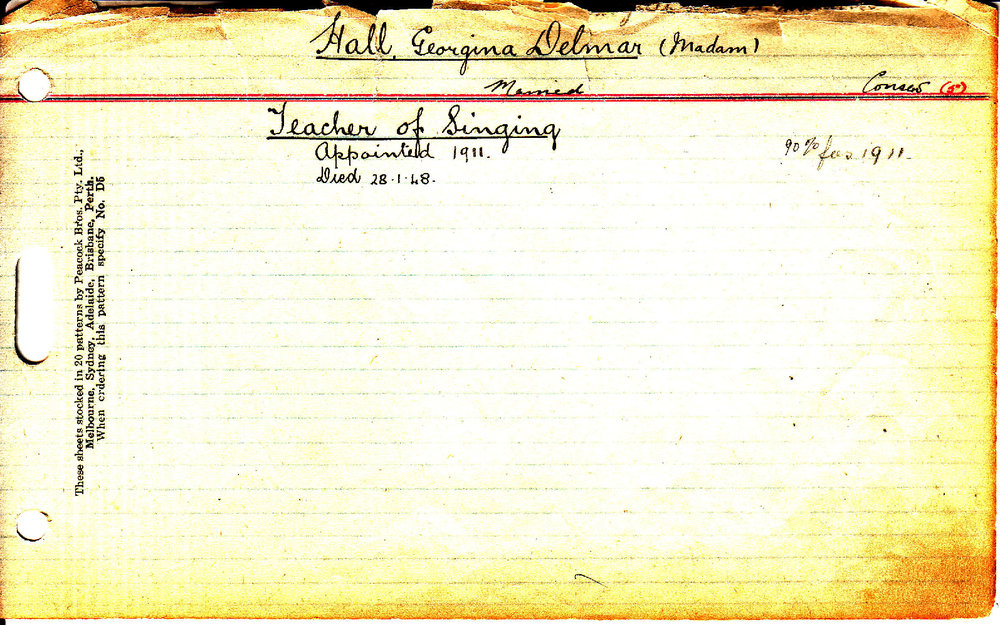 Hall, Georgina Delmar (Madam)
Married Conserv (5°)
Teacher of Singing
Appointed 1911. 90% for 1911.
Died 28.1.48.
These sheets stocked in 20 patterns by Peacock Bros. Pty. Ltd.,
Melbourne, Sydney, Adelaide, Brisbane, Perth.
When ordering this pattern specify No. D5